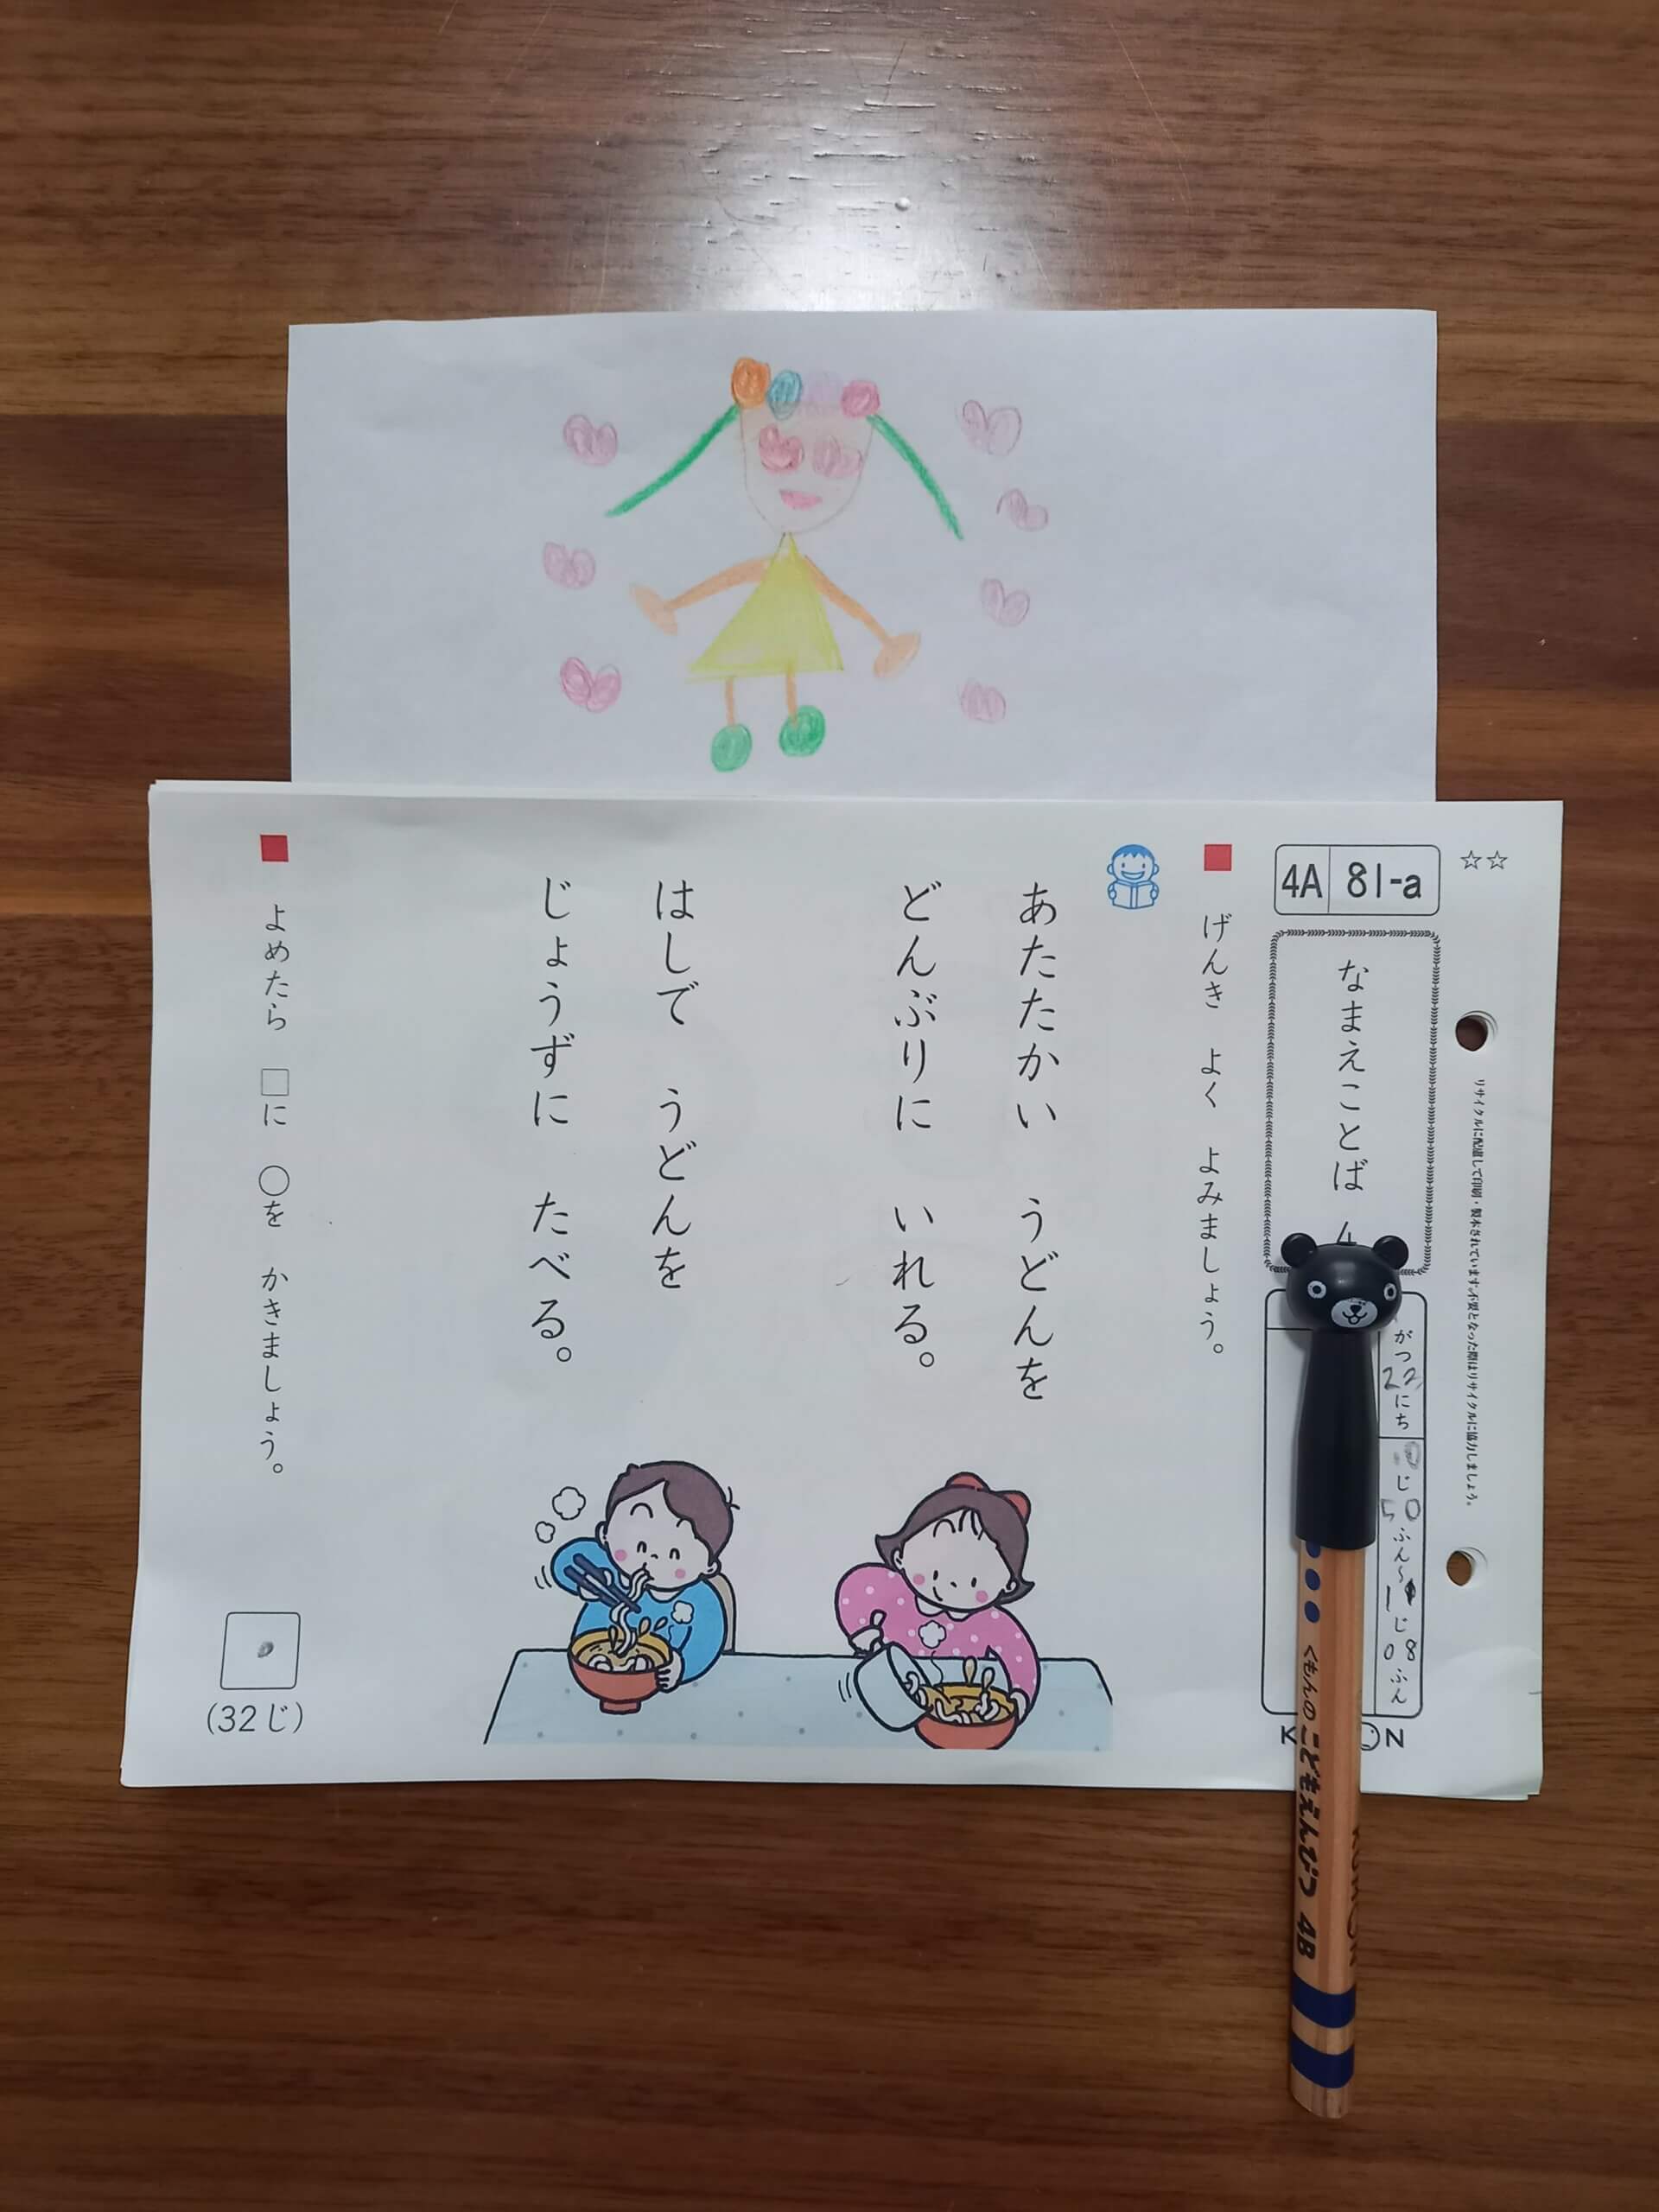 ☆☆
4A 81-a
なまえことば
リサイクルに配慮して印刷・製本されています。不要となった際はリサイクルに協力しましょう。
がつ22にち
10じ50ふん〜
じ08ふん
げんき よく よみましょう。
あたたかい うどんを
どんぶりに いれる。
はしで うどんを
じょうずに たべる。
よめたら □に ○を かきましょう。
(32じ)
くもんの こどもえんぴつ 4B